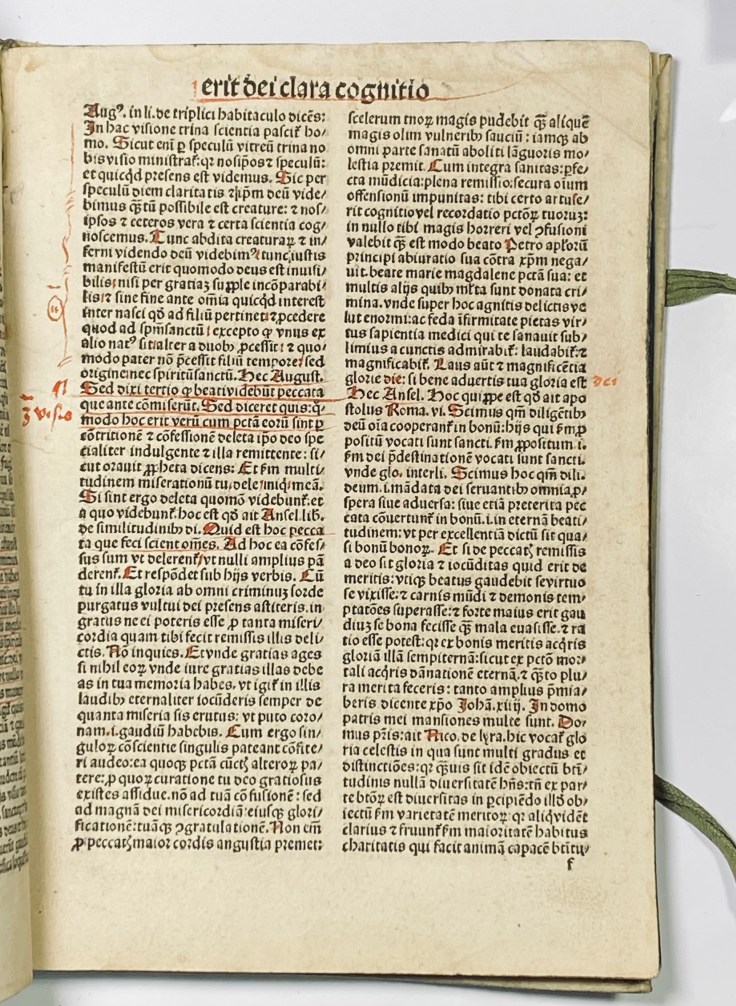 erit dei clara cognitio
Augꝰ. in li. de triplici habitaculo dicēs:
In hac visione trina scientia pascit̄ ho/
mo. Sicut eni ꝑ speculū vitreū trina no
bis visio ministrat̄: qꝛ nosip̄os ⁊ speculū:
et quicq̄d presens est videmus. Sic per
speculū diem claritatis ⁊ ip̄m deū vide/
bimus q̄ꝫtū possibile est creature: ⁊ nos/
ipsos ⁊ ceteros vera ⁊ certa scientia cog/
noscemus. Tunc abdita creaturaꝝ ⁊ in/
ferni videndo deū videbimꝰ: tunc iustis
manifestū erit quomodo deus est inuisi/
bilis: nisi per gratiaꝫ suꝑple incōparabi/
lis: ⁊ sine fine ante om̄ia quicq̄d interest
inter nasci qd̄ ad filiū pertinet: ⁊ ꝓcedere
quod ad spm̄sanctū: excepto ꝙ vnus ex
alio natꝰ sit: alter a duobꝰ ꝓcessit: ⁊ quo/
modo pater nō p̄cessit filiū tempore: sed
origine: nec spiritūsanctū. Hec August.
¶
Sed dixi tertio ꝙ beati videbūt peccata
ʒ visio
que ante cōmiserūt. Sed diceret quis: q̊/
modo hoc erit verū cum pctā eorū sint ꝑ
cōtritionē ⁊ cōfessionē deleta: ip̄o deo spe
cialiter indulgente ⁊ illa remittente: si/
cut orauit ꝓpheta dicens: Et ẜm multi/
tudinem miserationū tu. dele iniq. meā.
Si sint ergo deleta quomō videbunt̄: et
a quo videbunt̄. hoc est qd̄ ait Ansel. lib.
de similitudinibꝰ di. Quid est hoc pecca
ta que feci scient om̄es. Ad hoc ea cōfes/
sus sum vt delerent̄: vt nulli amplius pā
derent̄. Et respōdet sub hijs verbis. Cū
tu in illa gloria ab omni criminuꝫ sorde
purgatus vultui dei presens astiteris. in
gratus ne ei poteris esse ꝓ tanta miseri/
cordia quam tibi fecit remissis illis deli/
ctis. No inquies. Et vnde gratias ages
si nihil eoꝝ vnde iure gratias illas debe
as in tua memoria habes. vt igit̄ in illis
laudibꝰ eternaliter iocūderis semper de
quanta miseria sis erutus: vt puto coro/
nam. i. gaudiū habebis. Cum ergo sin/
guloꝝ cōscientie singulis pateant: cōfite/
ri audeo: ea quoqꝫ pctā cūctꝭ alteroꝝ pa/
tere: ꝓ quoꝝ curatione tu deo gratiosus
existes assidue. nō ad tuā cōfusionē: sed
ad magnā dei misericordiā: eiusqꝫ glori/
ficationē: tuāqꝫ ꝯgratulationē. Non em̄
ꝓ peccatꝭ maior cordis angustia premet:
scelerum tuoꝝ magis pudebit q̄ꝫ aliquē
magis olim vulneribꝰ sauciū: iamqꝫ ab
omni parte sanatū aboliti lāguoris mo/
lestia premit. Cum integra sanitas: ꝑfe/
cta mūdicia: plena remissio: secura oīum
offensionū impunitas: tibi certo artuse/
rit cognitio vel recordatio pctōꝝ tuoꝝ:
in nullo tibi magis horreri vel ꝯfusioni
valebit q̄ꝫ est modo beato Petro apl̄oꝝ
principi abiuratio sua cōtra xp̄m nega/
uit. beate marie magdalene pctā sua: et
multis alijs quibꝰ ml̄ta sunt donata cri/
mina. vnde super hoc agnitis delictis ve
lut enormi: ac feda īfirmitate pietas vir/
tus sapientia medici qui te sanauit sub/
limius a cunctis admirabit̄: laudabit̄: ⁊
magnificabit̄. Laus aūt ⁊ magnificētia
glorie die: si bene aduertis tua gloria est dei
Hec Ansel. Hoc quippe est qd̄ ait apo
stolus Roma. vi. Scimus qm̄ diligētibꝰ
deū oīa cooperant̄ in bonū: hijs qui ẜm ꝓ
positū vocati sunt sancti. ẜm ꝓpositum. i.
ẜm dei p̄destinationē vocati sunt sancti.
vnde glo. interli. Scimus hoc qm̄ dili.
deum. i. mādata dei seruantibꝰ omnia ꝓ/
spera siue aduersa: siue etiā preterita pec
cata cōuertunt̄ in bonū. i. in eternā beati/
tudinem: vt per excellentiā dictū sit qua/
si bonū bonoꝝ. Et si de peccatꝭ remissis
a deo sit gloria ⁊ iocūditas quid erit de
meritis: vtiqꝫ beatus gaudebit se virtuo
se vixisse: ⁊ carnis mūdi ⁊ demonis tem/
ptatōes superasse: ⁊ forte maius erit gau
diuꝫ se bona fecisse q̄ꝫ mala euasisse. ⁊ ra
tio esse potest: qꝛ ex bonis meritis acq̄ris
gloriā illā sempiternā: sicut ex pctō mor/
tali acq̄ris dānationē eternā. ⁊ q̄ꝫto plu/
ra merita feceris: tanto amplius p̄mia/
beris dicente xp̄o Johā. xiiij. In domo
patris mei mansiones multe sunt. Do/
mus pr̄is: ait Nico. de lyra. hic vocat̄ glo
ria celestis in qua sunt multi gradus et
distinctiōes: qꝛ q̄ꝫuis sit idē obiectū btī/
tudinis nullā diuersitatē hn̄s: tn̄ ex par/
te btōꝝ est diuersitas in ꝑcipiēdo illd̄ ob/
iectū ẜm varietatē meritoꝝ: qꝛ aliq̄ vidēt
clarius ⁊ fruunt̄ ẜm maioritatē habitus
charitatis qui facit animā capacē btītu/
f